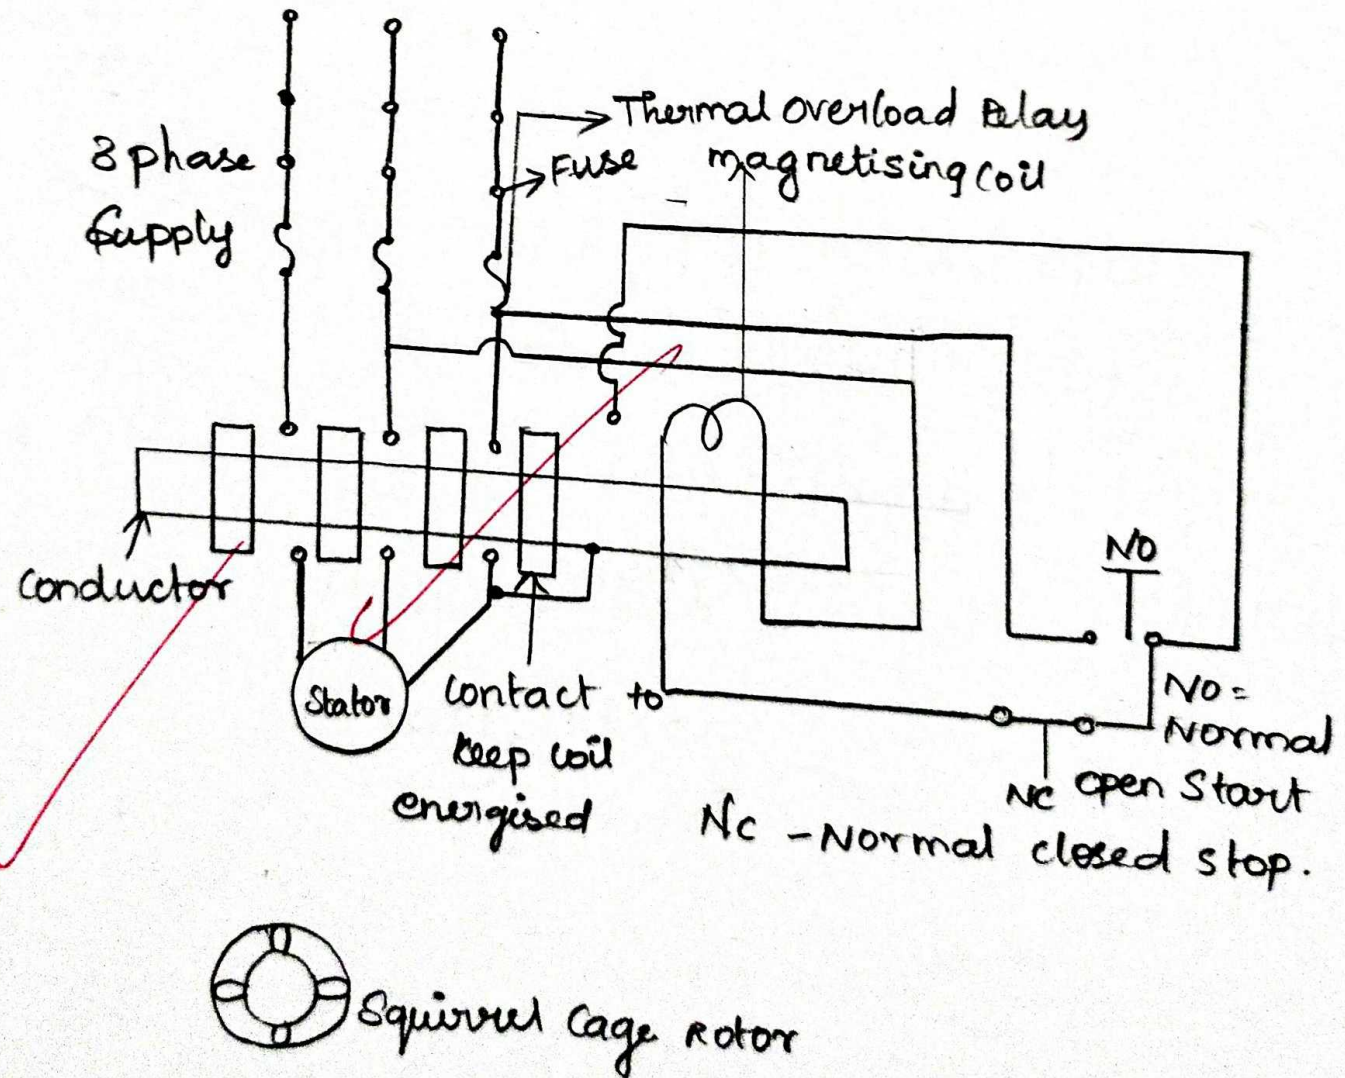 Thermal Overload Relay
3 phase
Supply
Fuse
magnetising coil
Conductor
NO
Stator
Contact to
keep coil
energised
NO =
Normal
open Start
NC
NC - Normal closed stop.
Squirrel Cage Rotor